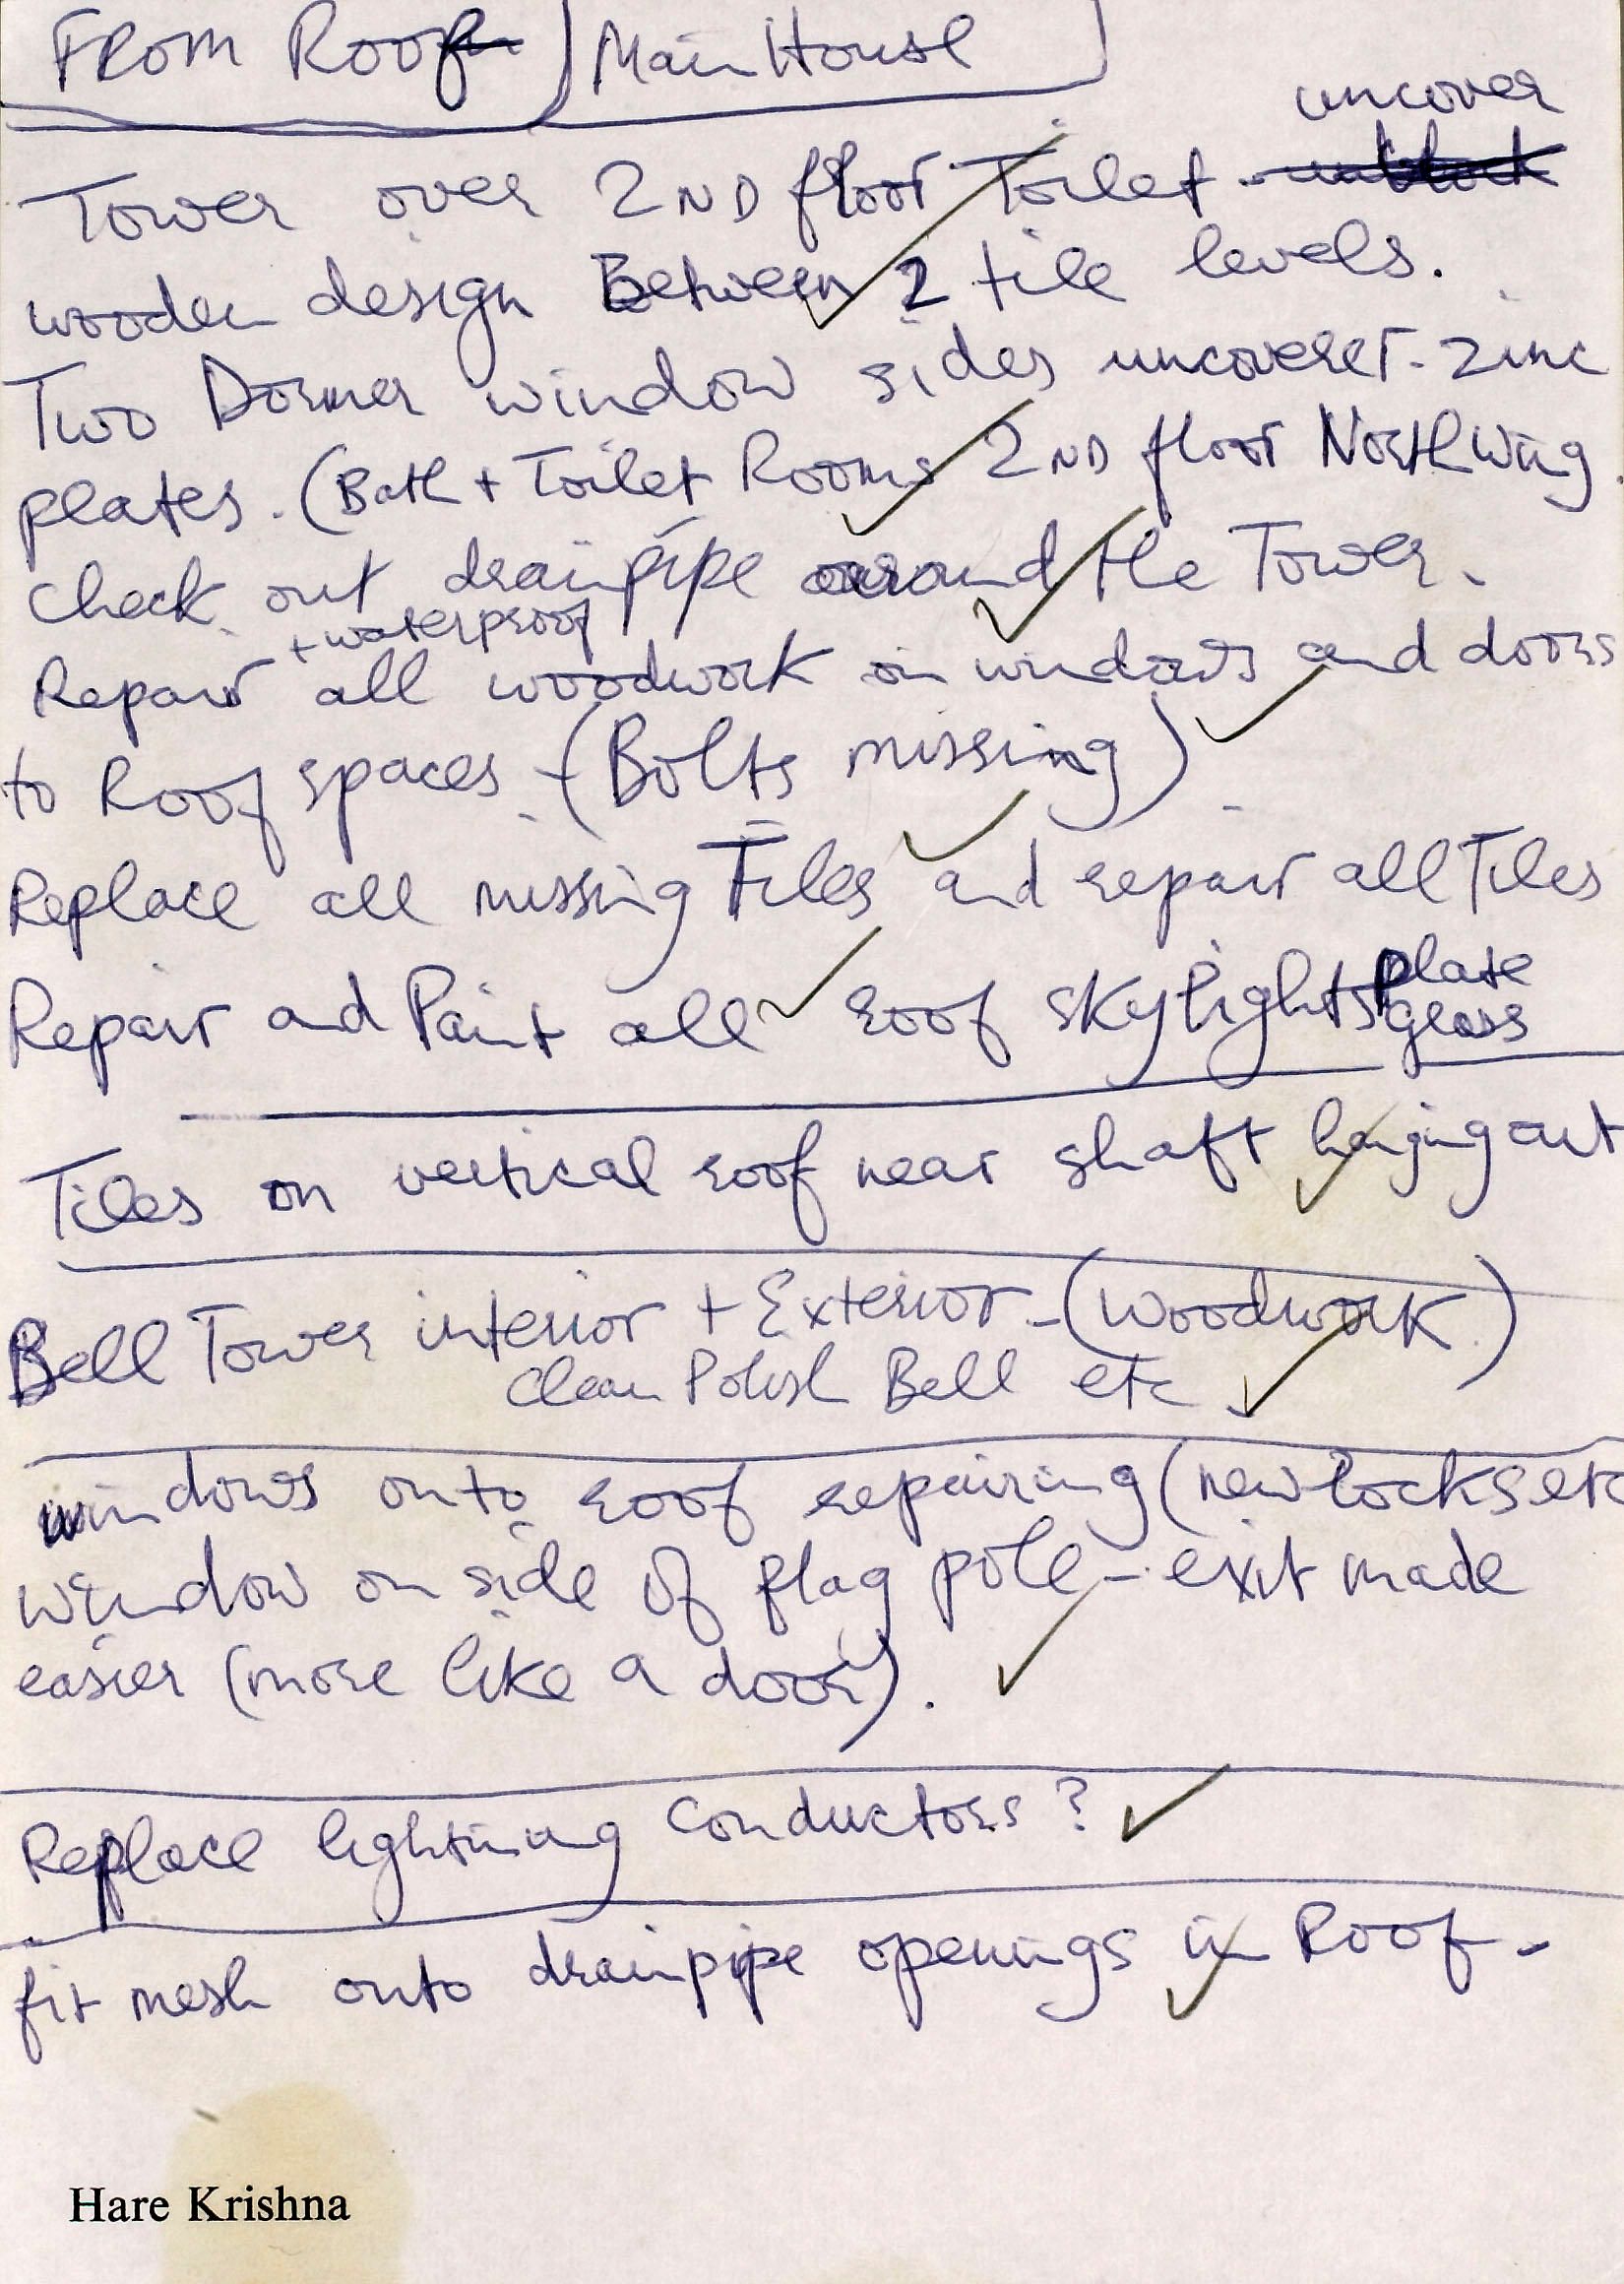 FROM ROOF Main House
uncover
Tower over 2ND floor Toilet - unblock
wooden design Between 2 tile levels.
Two Dormer window sides uncoveret. zinc
plates. (Bath + Toilet Rooms 2ND floor North Wing.
check out drainpipe around the Tower.
+ waterproof
Repair all woodwork on windows and doors
to Roof spaces - (Bolts missing)
Replace all missing Tiles and repair all Tiles
Repair and Paint all roof skylights plate
glass
Tiles on vertical roof near shaft hanging out
Bell Tower interior + Exterior - (woodwork.)
Clean Polish Bell etc
windows onto roof repairing (new locks etc
window on side of flag pole - exit made
easier (more like a door).
Replace lightning conductors?
fit mesh onto drainpipe openings in Roof -
Hare Krishna